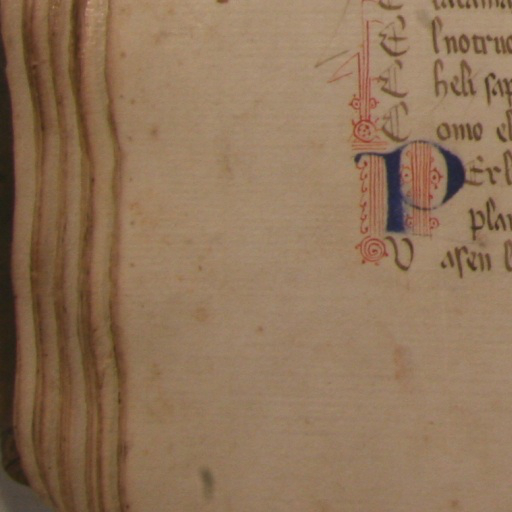 E
E l notruo
E heli sap
E omo el
PErl
plan
V asen l